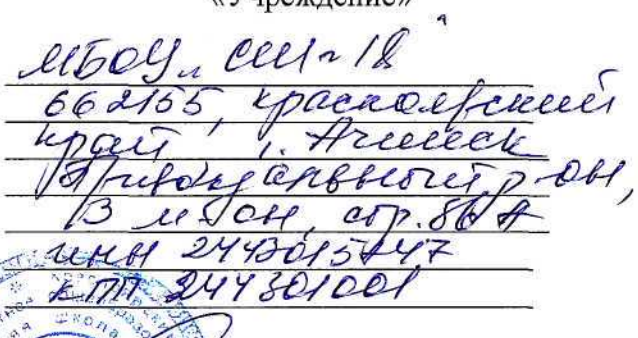 «Учреждение»
МБОУ „ СШ № 18
662155, Красноярский
край г. Ачинск
Привокзальный р-он,
3 м-он, стр. 86 А
ИНН
КПП 244301001
школа